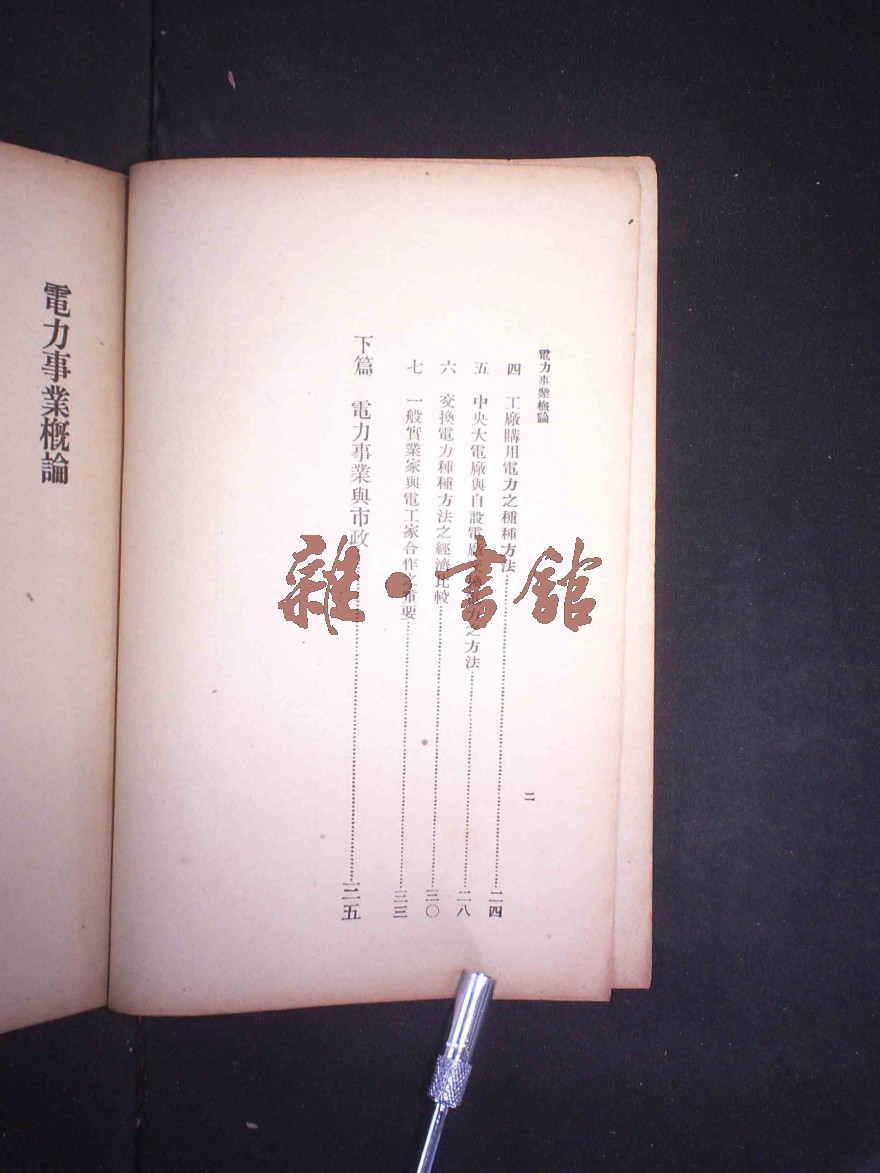 電力事業概論
四 工廠購用電力之種種方法 二四
五 中央大電廠與自設電廠交換電力之方法 二八
六 交換電力種種方法之經濟比較 三〇
七 一般實業家與電工家合作之重要 三三
下篇 電力事業與市政 三五
二
電力事業概論
雜·書館